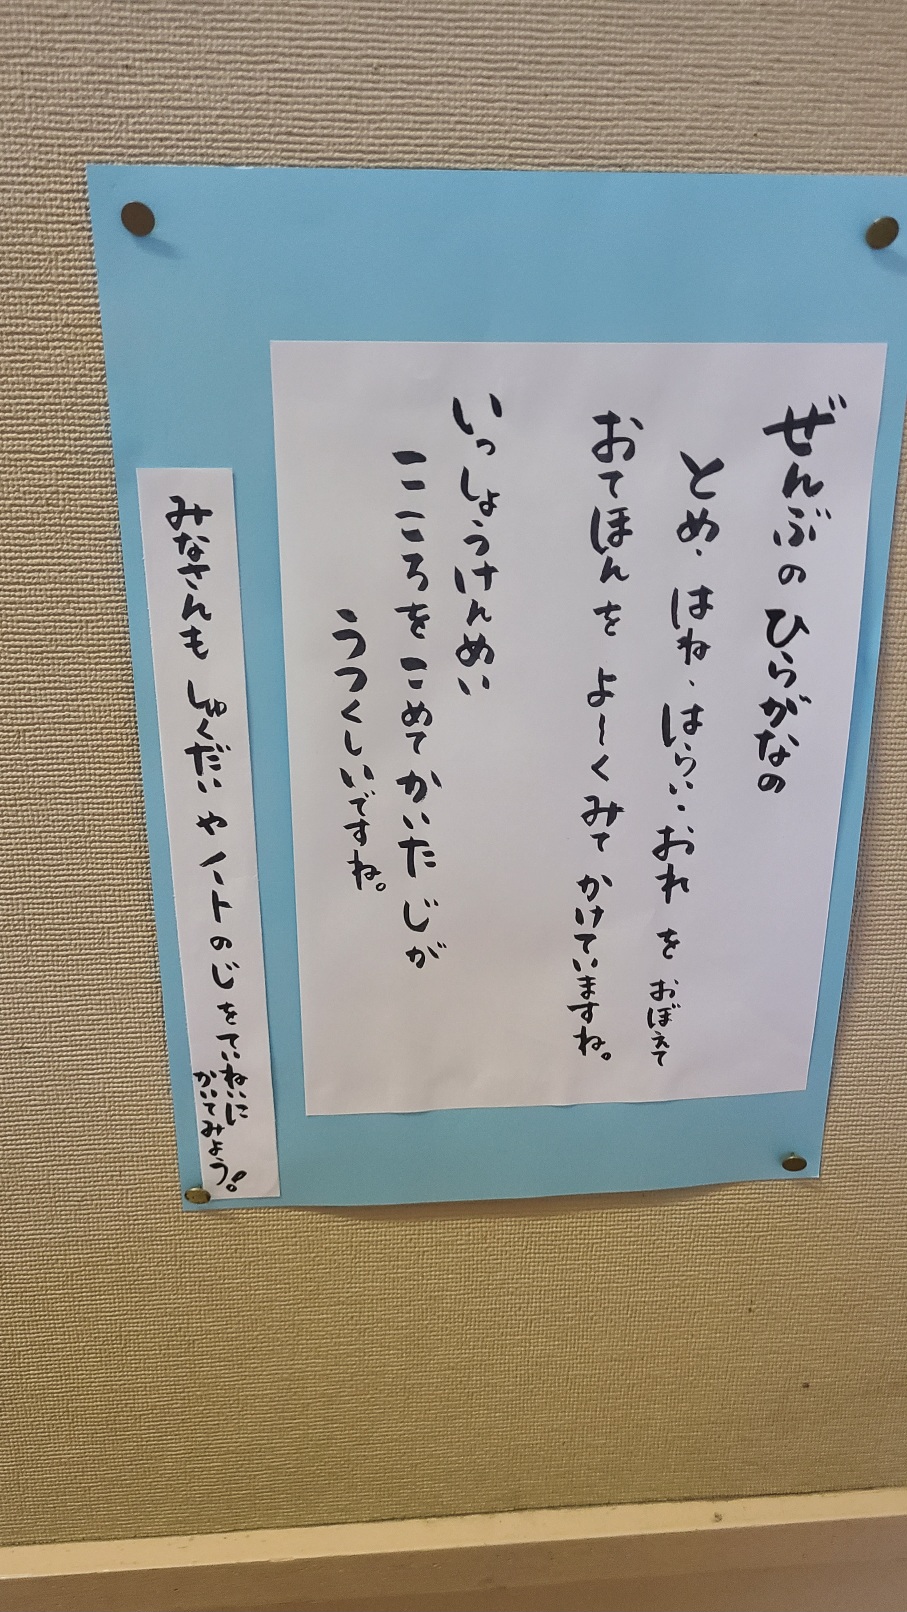 ぜんぶのひらがなの
とめ、はね、はらい、おれをおぼえて
おてほんをよ～くみてかけていますね。
いっしょうけんめい
こころをこめてかいたじが
うつくしいですね。
みなさんもしゅくだいやノートのじをていねいに
かいてみよう！